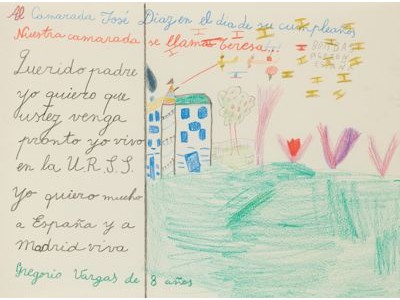 Al Camarada José Diaz en el dia de su cumpleaños
Nuestra camarada se llama Teresa...
Querido padre
yo quiero que
ustez venga
pronto yo vivo
en la U.R.S.S.
Yo quiero mucho
a España y a
Madrid viva
Gregorio Vargas de 8 años